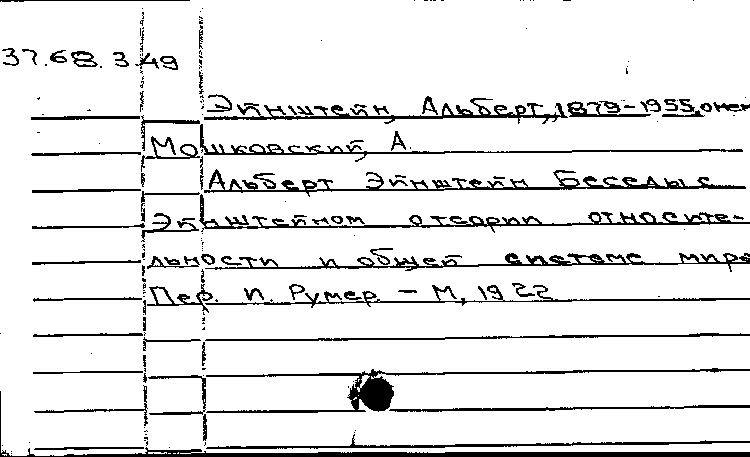 37.68.3.49
Эйнштейн, Альберт, 1879-1955, о нем
Мошковский, А.
Альберт Эйнштейн Беседы с
Эйнштейном о теории относите-
льности и общей системе мира
Пер. И. Румер - М, 1922